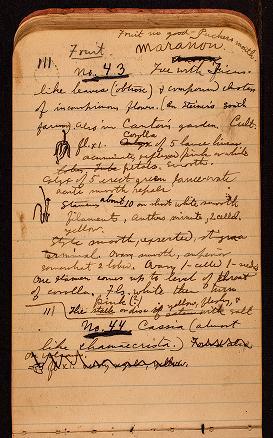 Fruit no good - Puckers mouth.
111 Fruit maranon.
No. 43 Tree with Ficus
like leaves (obtuse) & compound clusters
of inconspicuous flowers. (On Steins's south
farm) Also in Carter's garden. Cult.
fl. x 1. Corolla of 5 lance linear
acuminate, reflexed pink or white
petals. smooth.
Calyx of 5 erect green lanceovate
acute smooth sepals
Stamens about 10 on short white smooth
filaments, anthers minute, 2 celled,
yellow.
Style smooth, exserted, stigma
terminal. Ovary smooth, superior
somewhat 2 lobed. Ovary 1-celled 1-seeded
One stamen comes up to level of throat
of corolla. Fls. white then turn
pink (?)
111 The stalk or disc is yellow, fleshy, &
with salt
No. 44 Cassia (almost
like chamaecrista.)
fl. x 1. yellow.